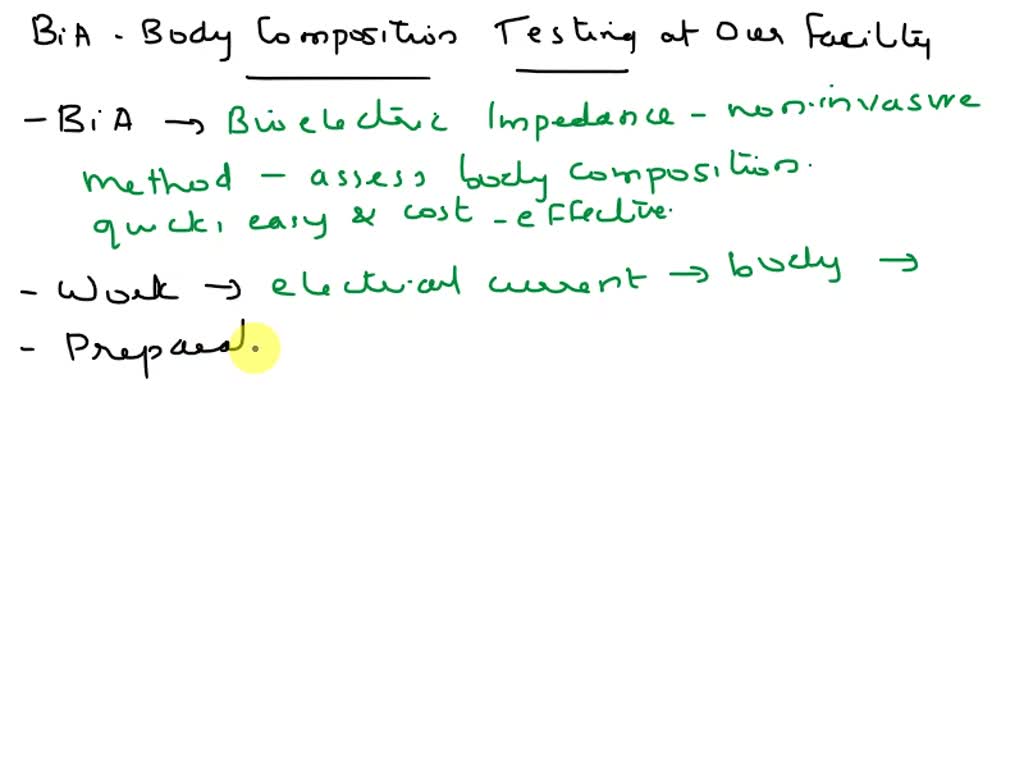 BiA - Body Composition Testing at Our Facility
- BiA → Bioelectric Impedance - non-invasive
method - assess body composition.
quick, easy & cost-effective.
- Work → electrical current → body →
- Prepared.